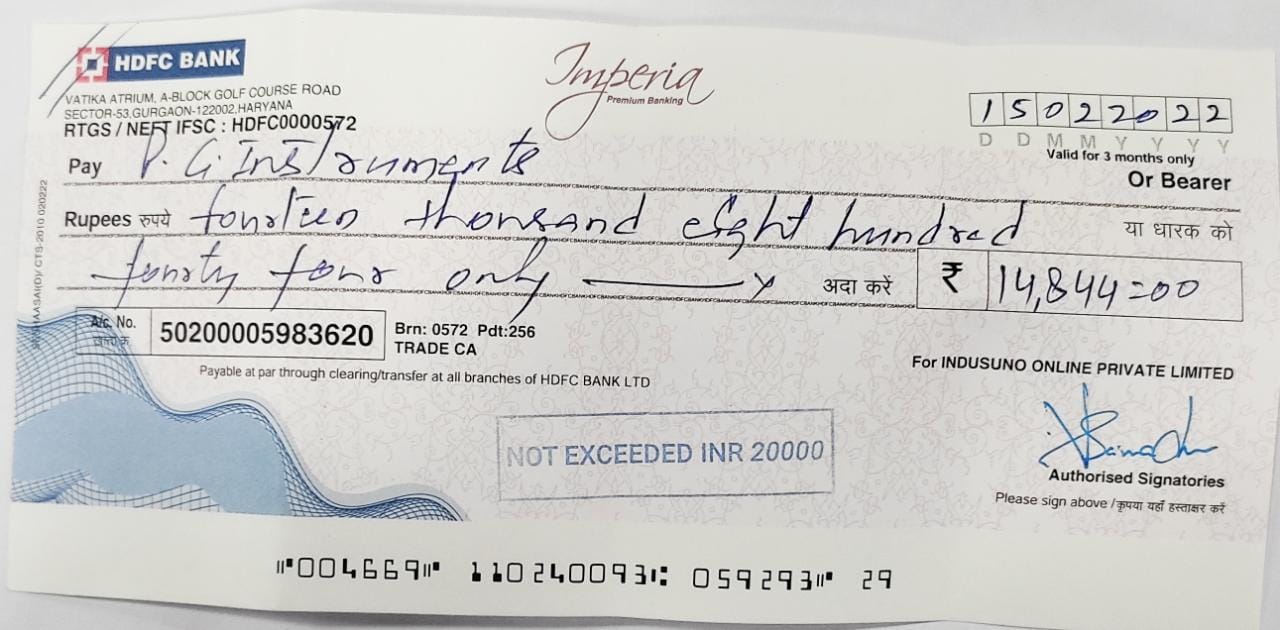 HDFC BANK
Imperia
Premium Banking
VATIKA ATRIUM, A-BLOCK GOLF COURSE ROAD
SECTOR-53,GURGAON-122002,HARYANA
RTGS / NEFT IFSC : HDFC0000572
1 5 0 2 2 0 2 2
D D M M Y Y Y Y
Valid for 3 months only
Pay P. G. Instruments
Or Bearer
Rupees रुपये fourteen thousand eight hundred या धारक को
fourty four only अदा करें ₹ 14,844=00
A/c. No. 50200005983620 Brn: 0572 Pdt:256
TRADE CA
Payable at par through clearing/transfer at all branches of HDFC BANK LTD
For INDUSUNO ONLINE PRIVATE LIMITED
NOT EXCEEDED INR 20000
Authorised Signatories
Please sign above /कृपया यहाँ हस्ताक्षर करें
⑈004669⑈ 110240093⑆ 059293⑈ 29
CTS-2010 020222